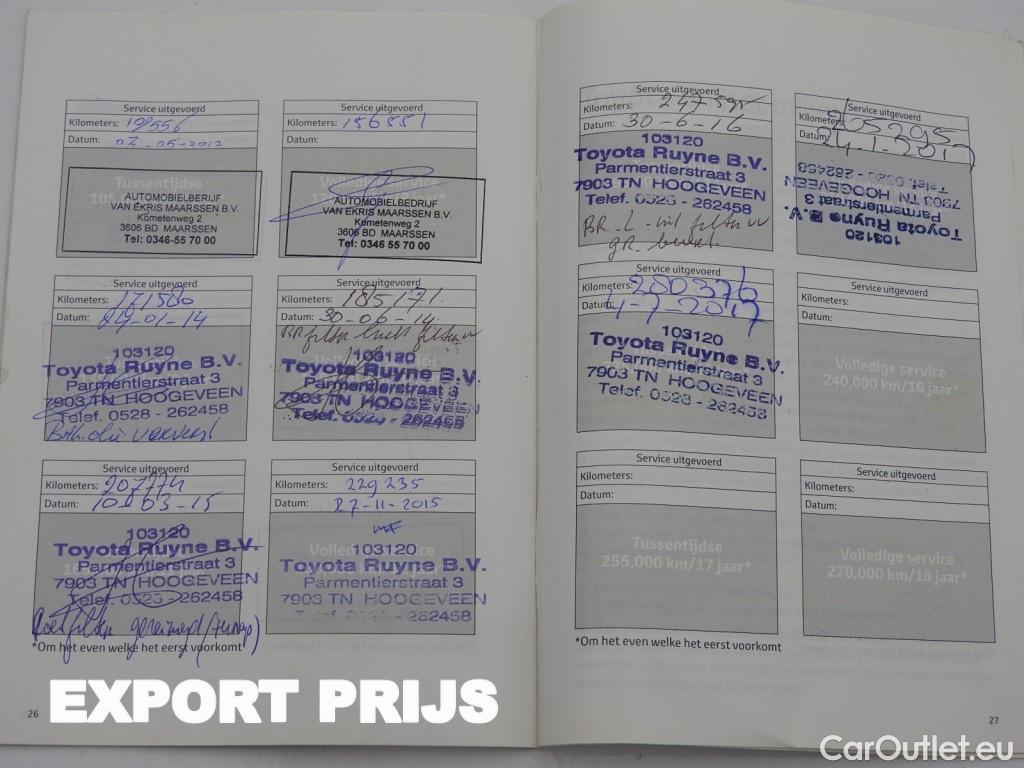 Service uitgevoerd
Kilometers: 
Datum: 02-05-2012
Tussentijdse
AUTOMOBIELBERIJF
VAN EKRIS MAARSSEN B.V.
Kometenweg 2
3606 BD MAARSSEN
Tel: 0346-55 70 00
Service uitgevoerd
Kilometers: 156551
Datum:
Volledige service
AUTOMOBIELBEDRIJF
VAN EKRIS MAARSSEN B.V.
Kometenweg 2
3606 BD MAARSSEN
Tel: 0346 55 70 00
Service uitgevoerd
Kilometers: 171506
Datum: 24-01-14
103120
Toyota Ruyne B.V.
Parmentierstraat 3
7903 TN HOOGEVEEN
Telef. 0528 - 262458
Service uitgevoerd
Kilometers: 185171.
Datum: 30-06-14.
103120
Toyota Ruyne B.V.
Parmentierstraat 3
7903 TN HOOGEVEEN
Telef. 0528 - 262458
Service uitgevoerd
Kilometers: 207774
Datum: 10-03-15
103120
Toyota Ruyne B.V.
Parmentierstraat 3
7903 TN HOOGEVEEN
Telef. 0528 - 262458
Roetfilter gereinigd
Service uitgevoerd
Kilometers: 229235
Datum: 27-11-2015
Volledige service
103120
Toyota Ruyne B.V.
Parmentierstraat 3
7903 TN HOOGEVEEN
Telef. 0528 - 262458
*Om het even welke het eerst voorkomt
26
Service uitgevoerd
Kilometers:
Datum: 30-6-16
103120
Toyota Ruyne B.V.
Parmentierstraat 3
7903 TN HOOGEVEEN
Telef. 0528 - 262458
Service uitgevoerd
Kilometers:
Datum: 24-1-2017
103120
Toyota Ruyne B.V.
Parmentierstraat 3
7903 TN HOOGEVEEN
Telef. 0528 - 262458
Service uitgevoerd
Kilometers: 280376
Datum: 4-7-2017
103120
Toyota Ruyne B.V.
Parmentierstraat 3
7903 TN HOOGEVEEN
Telef. 0528 - 262458
Service uitgevoerd
Kilometers:
Datum:
Volledige service
240,000 km/16 jaar*
Service uitgevoerd
Kilometers:
Datum:
Tussentijdse
255,000 km/17 jaar*
Service uitgevoerd
Kilometers:
Datum:
Volledige service
270,000 km/18 jaar*
*Om het even welke het eerst voorkomt
27
EXPORT PRIJS
CarOutlet.eu